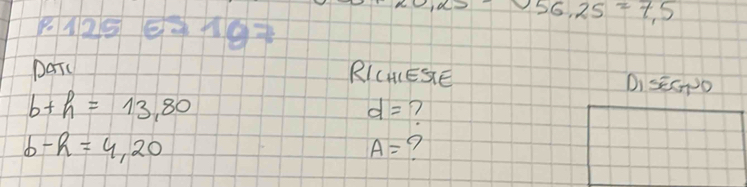 56,25 = 7,5
P. 125 ES 197
DATI
RICHIESTE
DISEGNO
b+h = 13,80
d = ?
b-h = 4,20
A = ?